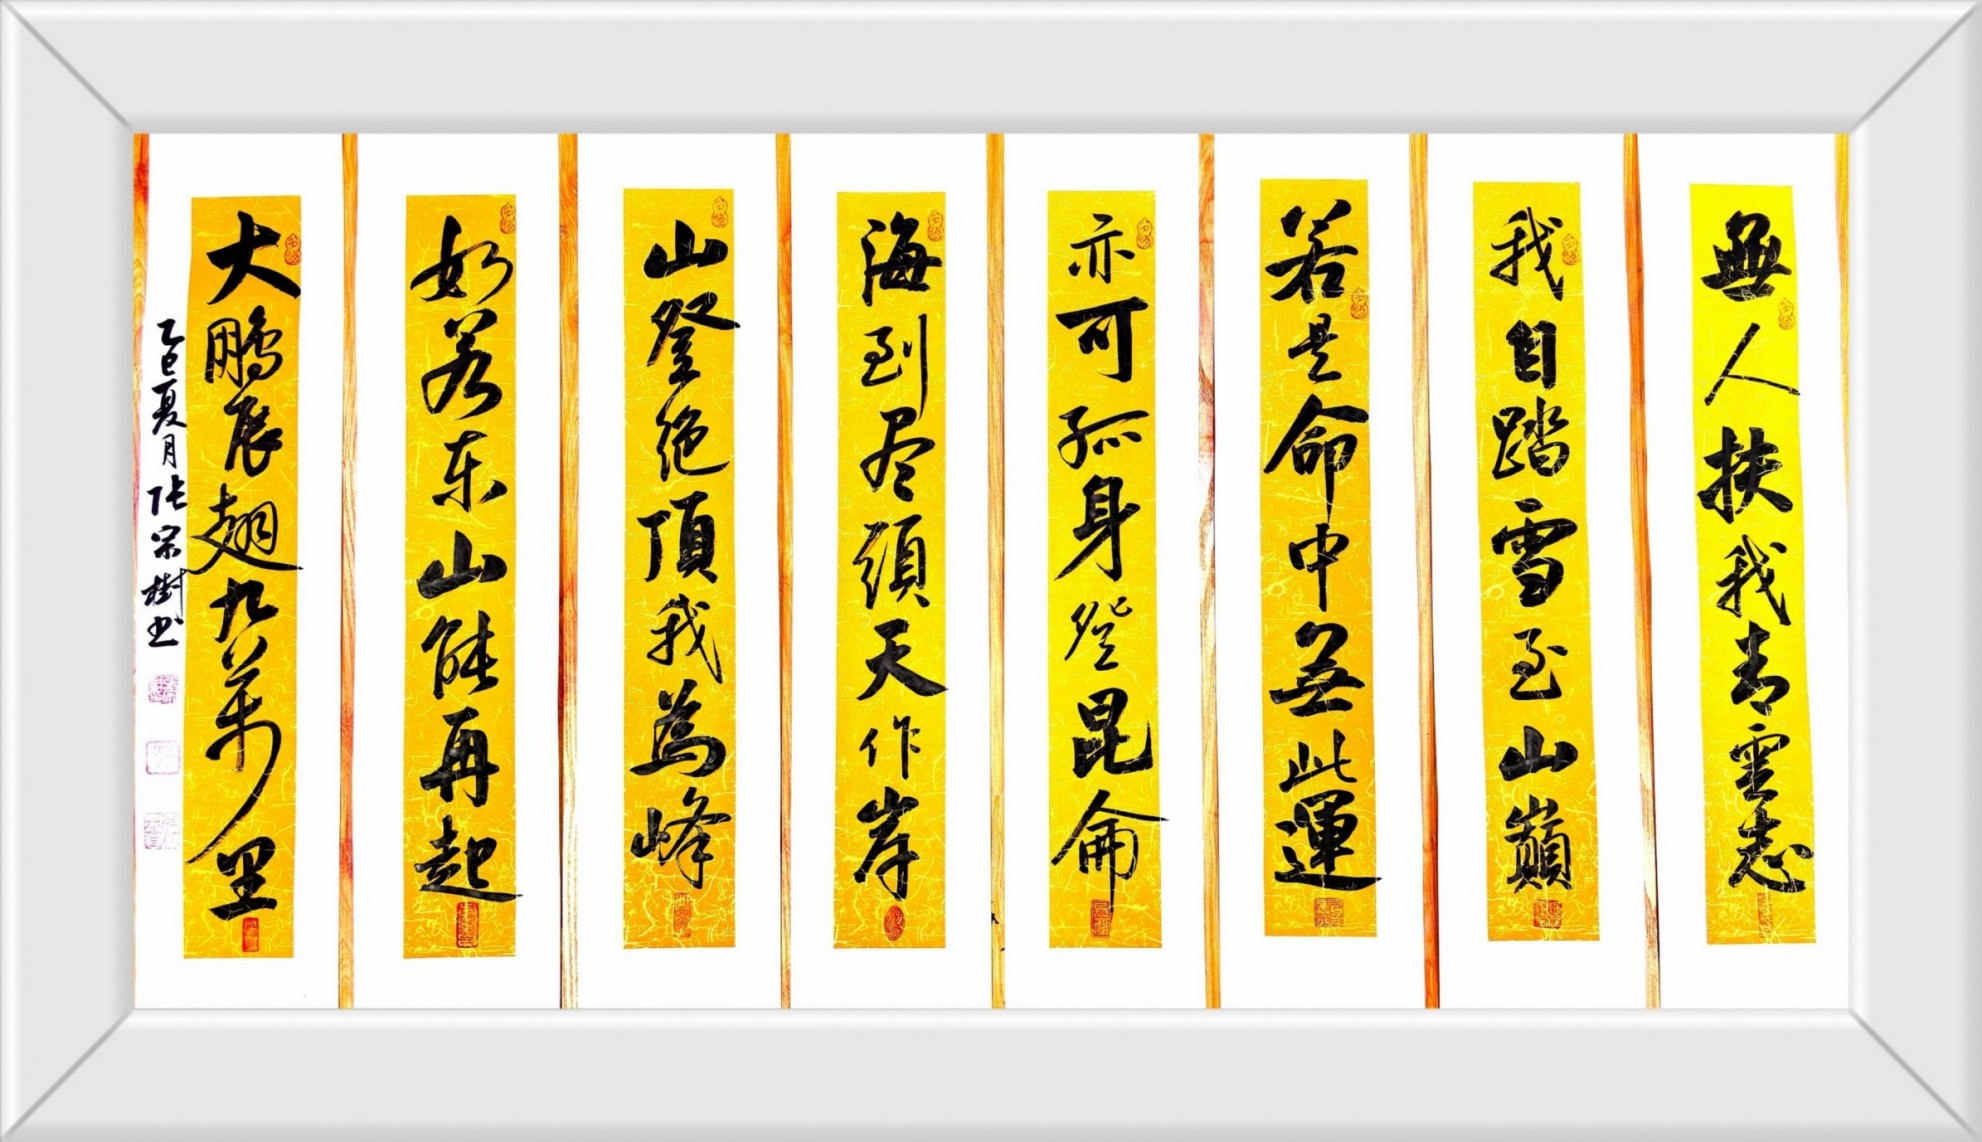 無人扶我青雲志
我自踏雪至山巔
若是命中無此運
亦可孤身登昆侖
海到尽頭天作岸
山登絶頂我為峰
如若东山能再起
大鵬展翅九萬里
乙巳夏月张宗樹书